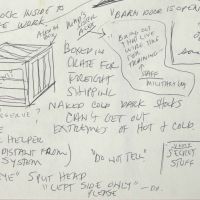 OCK INSIDE TO
E WORK.
"BARN DOOR IS OPEN
WARNER
BOXED IN
CRATE FOR
FREIGHT
SHIPPING
BRING OUT
THAT LIVE
WIRE
FOR
TRAINING
STAFF
MILITARY
NAKED COLD DARK SHOCKS
CAN'T GET OUT
EXTREMES OF HOT & COLD
HELPER
DISTANT FROM
SYSTEM
"DO NOT TELL"
SECRET
STUFF
EYE" SPLIT HEAD
"LEFT SIDE ONLY"
PLEASE